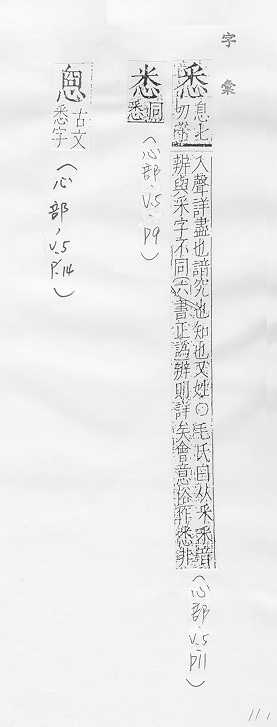 字彙
悉 息七切音膝
入聲詳盡也諳究也知也又姓○毛氏曰从釆釆音
辨與采字不同六書正譌辨則詳矣會意俗作悉非
(心部, V.5, P11)
同悉
(心部, V.5, P9)
古文
悉字
(心部, V.5 P.14)
11